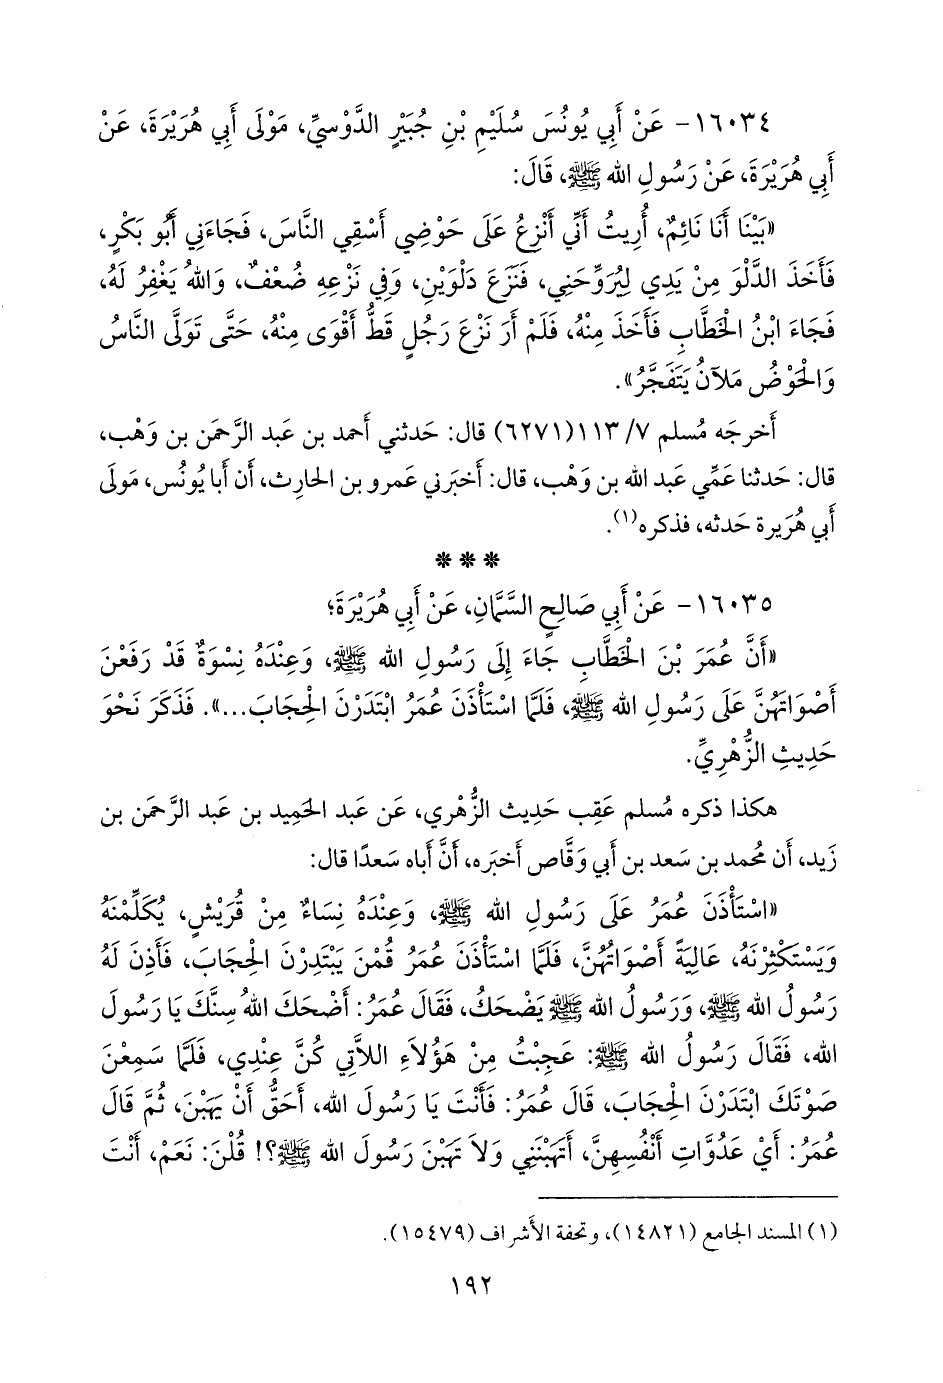 ١٦٠٣٤- عَنْ أَبِي يُونُسَ سُلَيْمِ بْنِ جُبَيْرٍ الدَّوْسِيِّ، مَوْلَى أَبِي هُرَيْرَةَ، عَنْ
أَبِي هُرَيْرَةَ، عَنْ رَسُولِ الله ﷺ، قَالَ:
«بَيْنَا أَنَا نَائِمٌ، أُرِيتُ أَنِّي أَنْزِعُ عَلَى حَوْضِي أَسْقِي النَّاسَ، فَجَاءَنِي أَبُو بَكْرٍ،
فَأَخَذَ الدَّلْوَ مِنْ يَدِي لِيُرَوِّحَنِي، فَنَزَعَ دَلْوَيْنِ، وَفِي نَزْعِهِ ضُعْفٌ، وَاللهُ يَغْفِرُ لَهُ،
فَجَاءَ ابْنُ الْخَطَّابِ فَأَخَذَ مِنْهُ، فَلَمْ أَرَ نَزْعَ رَجُلٍ قَطُّ أَقْوَى مِنْهُ، حَتَّى تَوَلَّى النَّاسُ
وَالْحَوْضُ مَلآنُ يَتَفَجَّرُ».
أَخرجَه مُسلم ٧/ ١١٣(٦٢٧١) قال: حَدثني أَحمد بن عَبد الرَّحمَن بن وَهْب،
قال: حَدثنا عَمِّي عَبد الله بن وَهْب، قال: أَخبَرني عَمرو بن الحارِث، أَن أَبا يُونُس، مَولَى
أَبي هُرَيرة حَدثه، فذكره(١).
* * *
١٦٠٣٥- عَنْ أَبِي صَالِحٍ السَّمَّانِ، عَنْ أَبِي هُرَيْرَةَ؛
«أَنَّ عُمَرَ بْنَ الْخَطَّابِ جَاءَ إِلَى رَسُولِ الله ﷺ، وَعِنْدَهُ نِسْوَةٌ قَدْ رَفَعْنَ
أَصْوَاتَهُنَّ عَلَى رَسُولِ الله ﷺ، فَلَمَّا اسْتَأْذَنَ عُمَرُ ابْتَدَرْنَ الْحِجَابَ...». فَذَكَرَ نَحْوَ
حَدِيثِ الزُّهْرِيِّ.
هكذا ذكره مُسلم عَقِب حَدِيث الزُّهْري، عَن عَبد الحَمِيد بن عَبد الرَّحمَن بن
زَيد، أَن مُحمد بن سَعد بن أَبي وَقَّاص أَخبَره، أَنَّ أَباه سَعدًا قال:
«اسْتَأْذَنَ عُمَرُ عَلَى رَسُولِ الله ﷺ، وَعِنْدَهُ نِسَاءٌ مِنْ قُرَيْشٍ، يُكَلِّمْنَهُ
وَيَسْتَكْثِرْنَهُ، عَالِيَةً أَصْوَاتُهُنَّ، فَلَمَّا اسْتَأْذَنَ عُمَرُ قُمْنَ يَبْتَدِرْنَ الْحِجَابَ، فَأَذِنَ لَهُ
رَسُولُ الله ﷺ، وَرَسُولُ الله ﷺ يَضْحَكُ، فَقَالَ عُمَرُ: أَضْحَكَ اللهُ سِنَّكَ يَا رَسُولَ
الله، فَقَالَ رَسُولُ الله ﷺ: عَجِبْتُ مِنْ هَؤُلاَءِ اللاَّتِي كُنَّ عِنْدِي، فَلَمَّا سَمِعْنَ
صَوْتَكَ ابْتَدَرْنَ الْحِجَابَ، قَالَ عُمَرُ: فَأَنْتَ يَا رَسُولَ الله، أَحَقُّ أَنْ يَهَبْنَ، ثُمَّ قَالَ
عُمَرُ: أَيْ عَدُوَّاتِ أَنْفُسِهِنَّ، أَتَهَبْنَنِي وَلاَ تَهَبْنَ رَسُولَ الله ﷺ؟! قُلْنَ: نَعَمْ، أَنْتَ
(١) المسند الجامع (١٤٨٢١)، وتحفة الأَشراف (١٥٤٧٩).
١٩٢